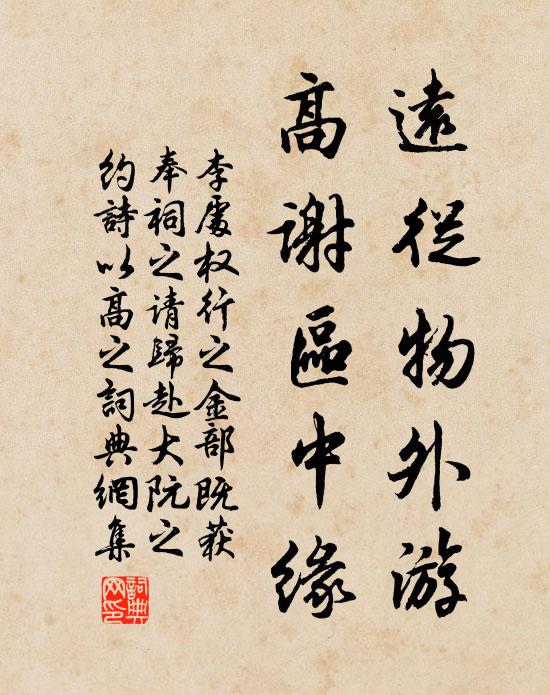 遠從物外游
高謝區中緣
李處权行之金部既获
奉祠之请歸赴大阮之
约詩以高之詞典網集
詞典网印